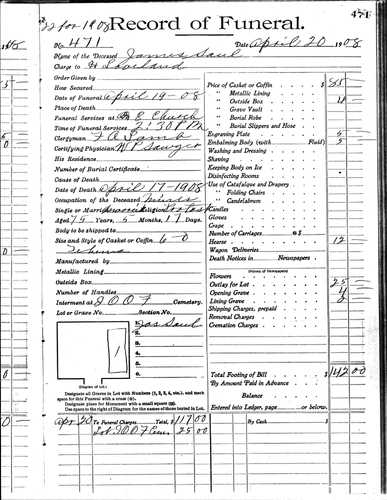 471
22 for 1908
Record of Funeral.
No. 471 Date April 20 1908
Name of the Deceased James Saul
Charge to H Loveland
Order Given by
How Secured
Date of Funeral April 19-08
Funeral Services at M E Church
Time of Funeral Services 2:30 PM
Clergyman F A Lamb
Certifying Physician W P Sawyer
His Residence
Number of Burial Certificate
Cause of Death
Date of Death April 17-1908
Occupation of the Deceased Miner
Single or Married Married Religion Protest
Aged 75 Years, 5 Months, 17 Days
Body to be shipped to
Size and Style of Casket or Coffin 6-0
Manufactured by
Metallic Lining
Outside Box
Number of Handles
Interment at IOOF Cemetery.
Lot or Grave No. Section No.
Jas Saul
(Diagram of Lot.)
Designate all Graves in Lot with Numbers (1, 2, 3, 4, etc.), and mark space for this Funeral with a cross (+).
Designate place for Monument with a small square (□).
Use space to the right of Diagram for the names of those buried in Lot.
Price of Casket or Coffin $ 85
" Metallic Lining
" Outside Box
" Grave Vault
" Burial Robe
" Burial Slippers and Hose
Engraving Plate 5
Embalming Body (with Fluid) 5
Washing and Dressing
Shaving
Keeping Body on Ice
Disinfecting Rooms
Use of Catafalque and Drapery
" Folding Chairs
" Candelabrum
Candles
Gloves
Crape
Number of Carriages @ $
Hearse 12
Wagon Deliveries
Death Notices in Newspapers
(Names of Newspapers)
Flowers
Outlay for Lot 25
Opening Grave
Lining Grave
Shipping Charges, prepaid
Removal Charges
Cremation Charges
Total Footing of Bill $ 142 00
By Amount Paid in Advance
Balance
Entered into Ledger, page or below.
Apr 20 To Funeral Charges Total, $ 117 00 By Cash $
Lot IOOF Cem 25 00